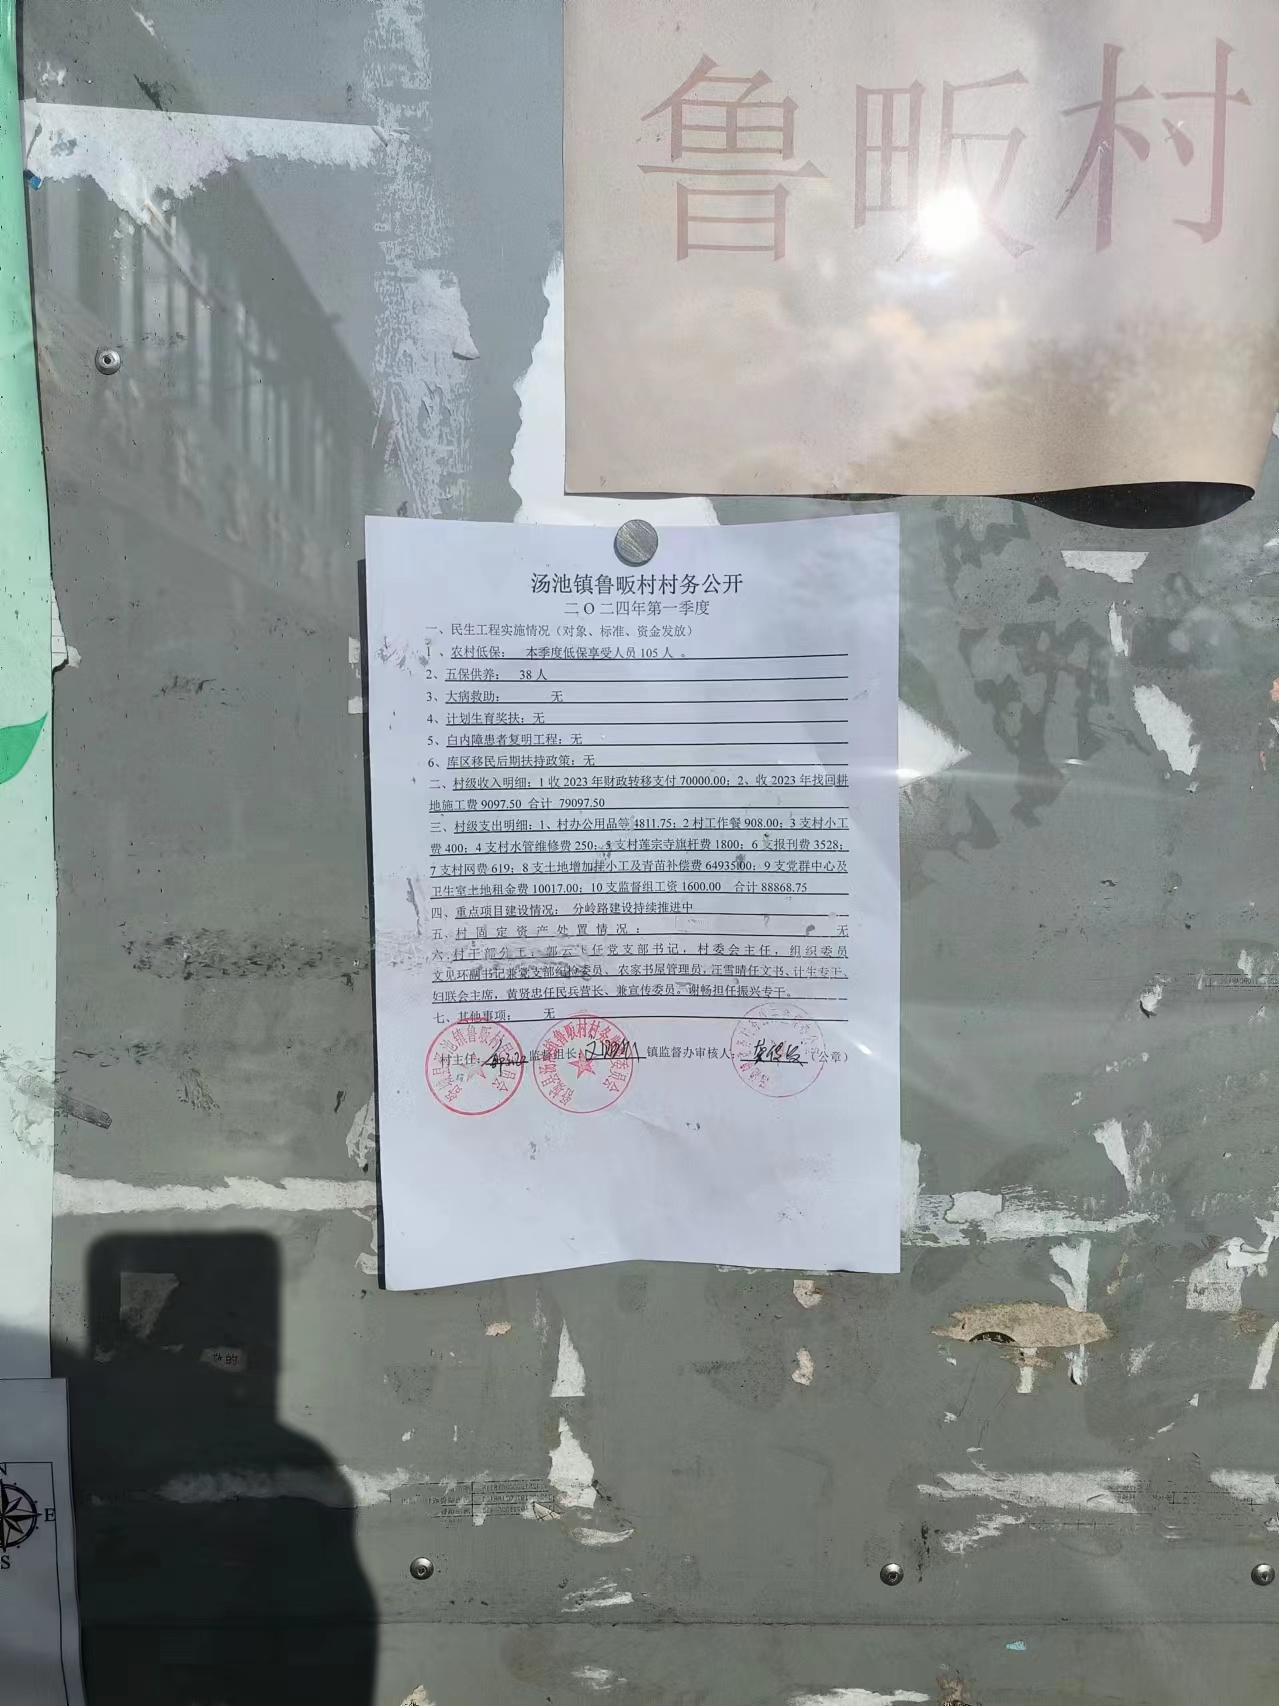 鲁畈村
汤池镇鲁畈村村务公开
二O二四年第一季度
一、民生工程实施情况（对象、标准、资金发放）
1、农村低保： 本季度低保享受人员105人 。
2、五保供养： 38人
3、大病救助： 无
4、计划生育奖扶：无
5、白内障患者复明工程：无
6、库区移民后期扶持政策：无
二、村级收入明细：1收2023年财政转移支付70000.00；2、收2023年找回耕
地施工费9097.50 合计 79097.50
三、村级支出明细：1、村办公用品等4811.75；2村工作餐908.00；3支村小工
费400；4支村水管维修费250；5支村莲宗寺旗杆费1800；6支报刊费3528；
7支村网费619；8支土地增加挂小工及青苗补偿费64935.00；9支党群中心及
卫生室土地租金费10017.00；10支监督组工资1600.00 合计88868.75
四、重点项目建设情况： 分岭路建设持续推进中
五、村固定资产处置情况： 无
六、村干部分工：郭云 任党支部书记，村委会主任，组织委员
文见环副书记兼党支部纪检委员、农家书屋管理员，汪雪晴任文书、计生专干、
妇联会主席，黄贤忠任民兵营长、兼宣传委员。谢畅担任振兴专干。
七、其他事项： 无
村主任： 监督组长： 镇监督办审核人： （公章）
N
E
S